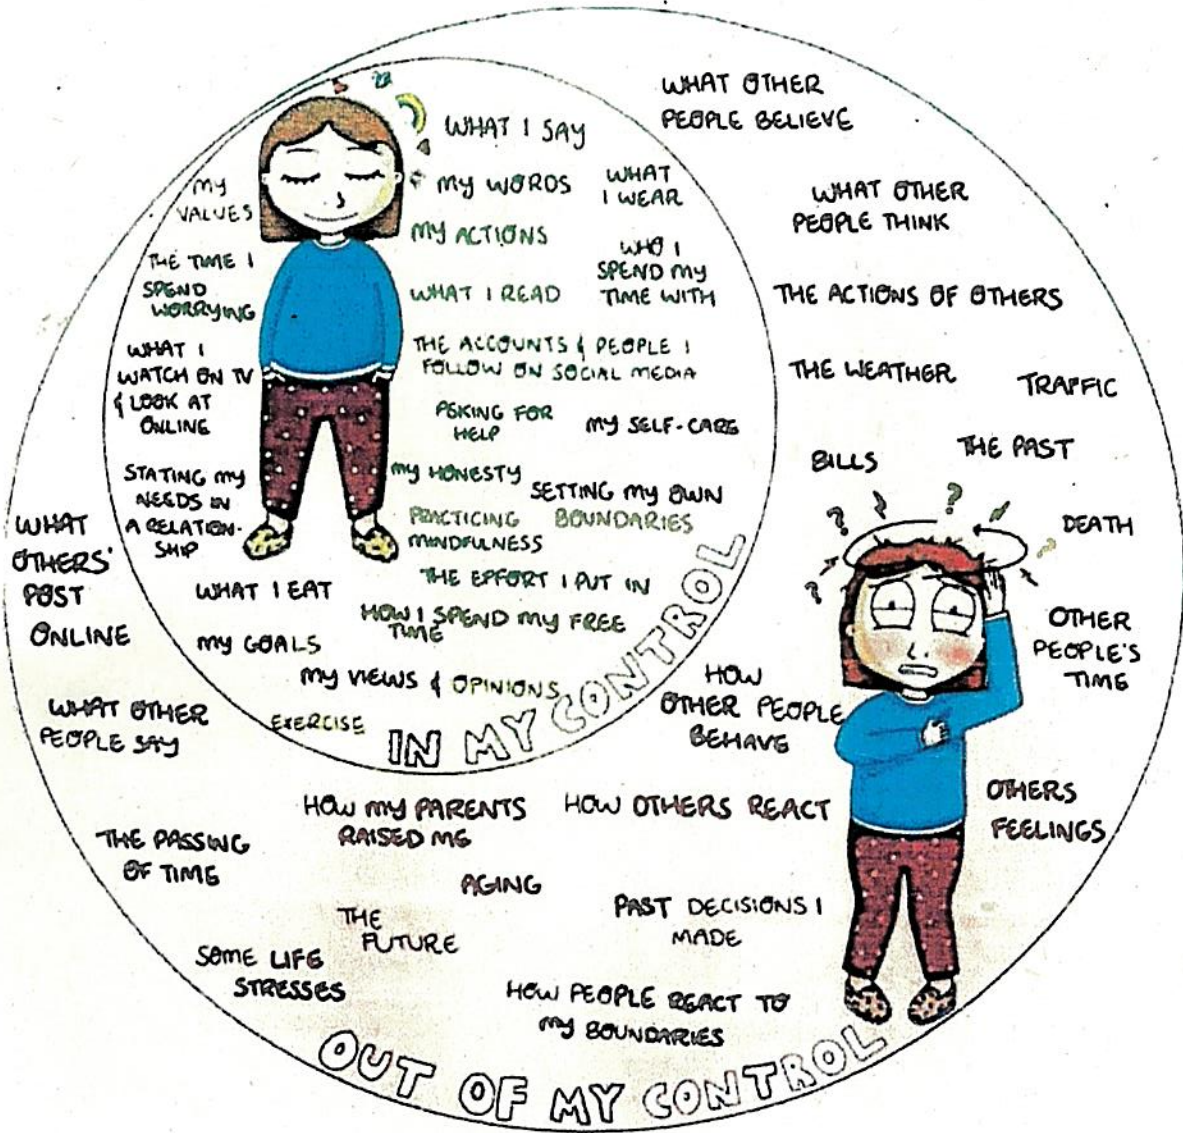 WHAT I SAY
MY WORDS
WHAT
I WEAR
MY
VALUES
MY ACTIONS
WHO I
SPEND MY
TIME WITH
THE TIME I
SPEND
WORRYING
WHAT I READ
WHAT I
WATCH ON TV
& LOOK AT
ONLINE
THE ACCOUNTS & PEOPLE I
FOLLOW ON SOCIAL MEDIA
ASKING FOR
HELP
MY SELF-CARE
STATING MY
NEEDS IN
A RELATION-
SHIP
MY HONESTY
SETTING MY OWN
BOUNDARIES
PRACTICING
MINDFULNESS
THE EFFORT I PUT IN
WHAT I EAT
HOW I SPEND MY FREE
TIME
MY GOALS
MY VIEWS & OPINIONS
EXERCISE
IN MY CONTROL
WHAT OTHER
PEOPLE BELIEVE
WHAT OTHER
PEOPLE THINK
THE ACTIONS OF OTHERS
THE WEATHER
TRAFFIC
BILLS
THE PAST
DEATH
? ? ?
OTHER
PEOPLE'S
TIME
HOW
OTHER PEOPLE
BEHAVE
OTHERS
FEELINGS
WHAT
OTHERS'
POST
ONLINE
WHAT OTHER
PEOPLE SAY
HOW MY PARENTS
RAISED ME
HOW OTHERS REACT
THE PASSING
OF TIME
AGING
PAST DECISIONS I
MADE
THE
FUTURE
SOME LIFE
STRESSES
HOW PEOPLE REACT TO
MY BOUNDARIES
OUT OF MY CONTROL